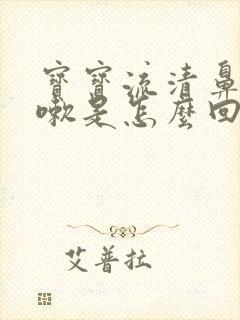 寶寶流清鼻
嗽是怎麼回
艾普拉